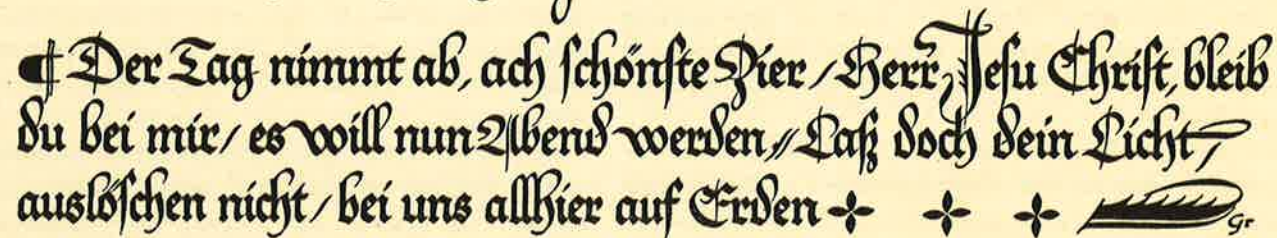 ¶ Der Tag nimmt ab, ach schönste Zier / Herr, Jesu Christ, bleib
du bei mir / es will nun Abend werden, // Laß doch dein Licht /
auslöschen nicht / bei uns allhier auf Erden
Gr